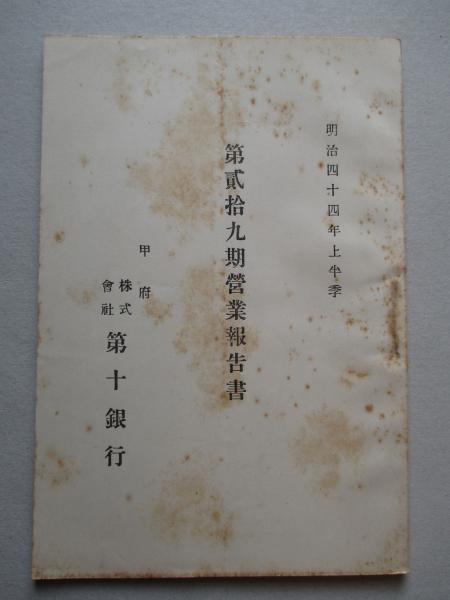 明治四十四年上半季
第貳拾九期營業報告書
甲府
株式會社第十銀行